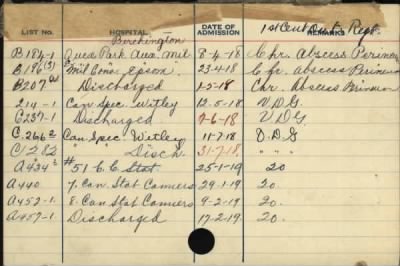 LIST NO. HOSPITAL DATE OF ADMISSION 1st Cent Ont. Regt. REMARKS
Birchington
B184-1 Qued Park Aux. Mil 8-4-18 Chr. Abscess Perineum
B186(3) Mil Conv. Epsom 23-4-18 Chr. Abscess Perineum
B207 Discharged 1-5-18 Chr. Abscess Perineum
214-1 Can Spec Witley 12-5-18 V.D.G
C237-1 Discharged 7-6-18 V.D.G
C.266 Can Spec Witley 11-7-18 V.D.G
C1282 " " Disch. 31-7-18 " " "
A434 #51 C.C. Stat. 25-1-19 20
A440 7. Can Stat Camiers 29-1-19 20.
A452-1 8. Can Stat Camiers 9-2-19 20.
A457-1 Discharged 17-2-19 20.